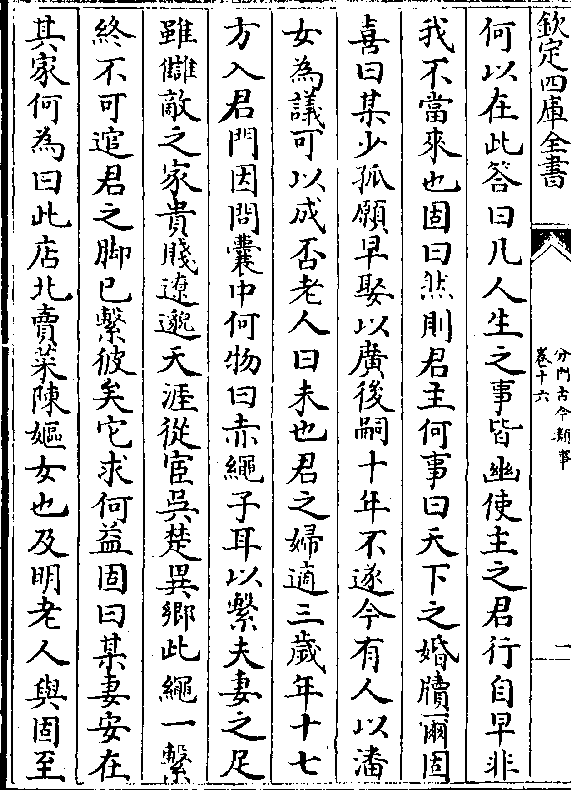 欽定四庫全書
分門古今類事
卷十六
二
何以在此答曰凡人生之事皆幽使主之君行自早非
我不當來也固曰然則君主何事曰天下之婚牘爾固
喜曰某少孤願早娶以廣後嗣十年不遂今有人以潘
女為議可以成否老人曰未也君之婦適三歲年十七
方入君門因問囊中何物曰赤繩子耳以繫夫妻之足
雖讎敵之家貴賤遼邈天涯從宦吳楚異鄉此繩一繫
終不可逭君之脚已繫彼矣它求何益固曰某妻安在
其家何為曰此店北賣菜陳嫗女也及明老人與固至